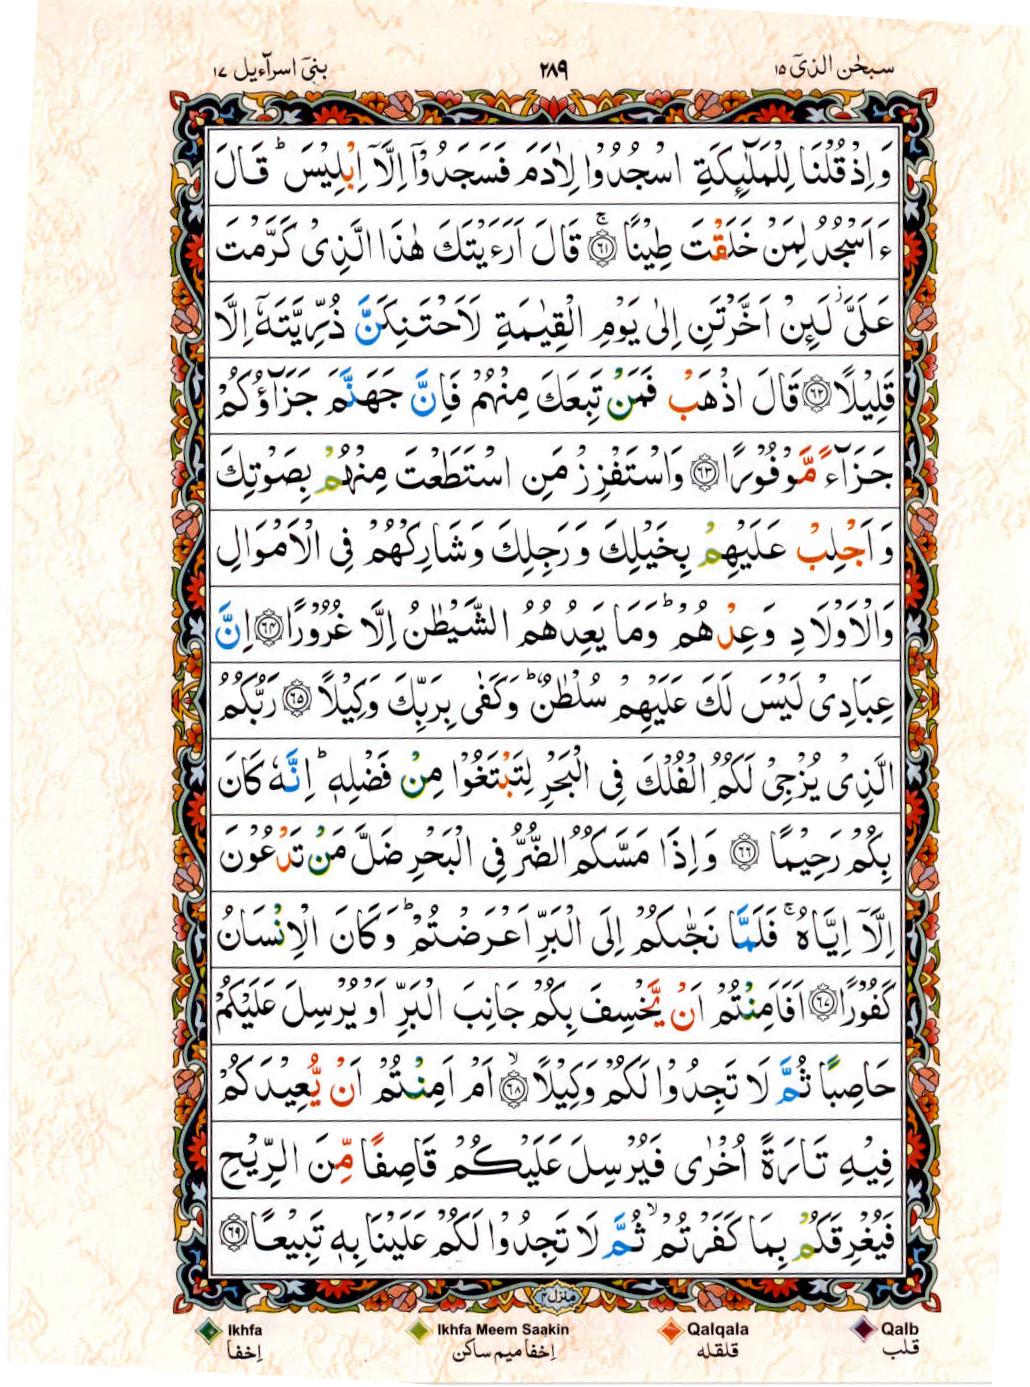 سبحٰن الذیٓ ۱۵
۲۸۹
بنیٓ اسرآءیل ۱۷
وَاِذْ قُلْنَا لِلْمَلٰٓئِكَةِ اسْجُدُوْا لِاٰدَمَ فَسَجَدُوْۤا اِلَّاۤ اِبْلِيْسَ ؕ قَالَ
ءَاَسْجُدُ لِمَنْ خَلَقْتَ طِيْنًا ۚ‏﴿۶۱﴾ قَالَ اَرَءَيْتَكَ هٰذَا الَّذِىْ كَرَّمْتَ
عَلَىَّ ؗ لَٮِٕنْ اَخَّرْتَنِ اِلٰى يَوْمِ الْقِيٰمَةِ لَاَحْتَنِكَنَّ ذُرِّيَّتَهٗۤ اِلَّا
قَلِيْلًا ﴿۶۲﴾ قَالَ اذْهَبْ فَمَنْ تَبِعَكَ مِنْهُمْ فَاِنَّ جَهَنَّمَ جَزَآؤُكُمْ
جَزَآءً مَّوْفُوْرًا ﴿۶۳﴾ وَاسْتَفْزِزْ مَنِ اسْتَطَعْتَ مِنْهُمْ بِصَوْتِكَ
وَاَجْلِبْ عَلَيْهِمْ بِخَيْلِكَ وَرَجِلِكَ وَشَارِكْهُمْ فِى الْاَمْوَالِ
وَالْاَوْلَادِ وَعِدْهُمْ ؕ وَمَا يَعِدُهُمُ الشَّيْطٰنُ اِلَّا غُرُوْرًا ﴿۶۴﴾ اِنَّ
عِبَادِىْ لَيْسَ لَكَ عَلَيْهِمْ سُلْطٰنٌ ؕ وَكَفٰى بِرَبِّكَ وَكِيْلًا ﴿۶۵﴾ رَبُّكُمُ
الَّذِىْ يُزْجِىْ لَكُمُ الْفُلْكَ فِى الْبَحْرِ لِتَبْتَغُوْا مِنْ فَضْلِهٖ ؕ اِنَّهٗ كَانَ
بِكُمْ رَحِيْمًا ﴿۶۶﴾ وَاِذَا مَسَّكُمُ الضُّرُّ فِى الْبَحْرِ ضَلَّ مَنْ تَدْعُوْنَ
اِلَّاۤ اِيَّاهُ ۚ فَلَمَّا نَجّٰٮكُمْ اِلَى الْبَرِّ اَعْرَضْتُمْ ؕ وَكَانَ الْاِنْسَانُ
كَفُوْرًا ﴿۶۷﴾ اَفَاَمِنْتُمْ اَنْ يَّخْسِفَ بِكُمْ جَانِبَ الْبَرِّ اَوْ يُرْسِلَ عَلَيْكُمْ
حَاصِبًا ثُمَّ لَا تَجِدُوْا لَكُمْ وَكِيْلًا ۙ‏﴿۶۸﴾ اَمْ اَمِنْتُمْ اَنْ يُّعِيْدَكُمْ
فِيْهِ تَارَةً اُخْرٰى فَيُرْسِلَ عَلَيْكُمْ قَاصِفًا مِّنَ الرِّيْحِ
فَيُغْرِقَكُمْ بِمَا كَفَرْتُمْ ۙ ثُمَّ لَا تَجِدُوْا لَكُمْ عَلَيْنَا بِهٖ تَبِيْعًا ﴿۶۹﴾
منزل ۴
Ikhfa
اِخفا
Ikhfa Meem Saakin
اِخفا میم ساکن
Qalqala
قلقله
Qalb
قلب